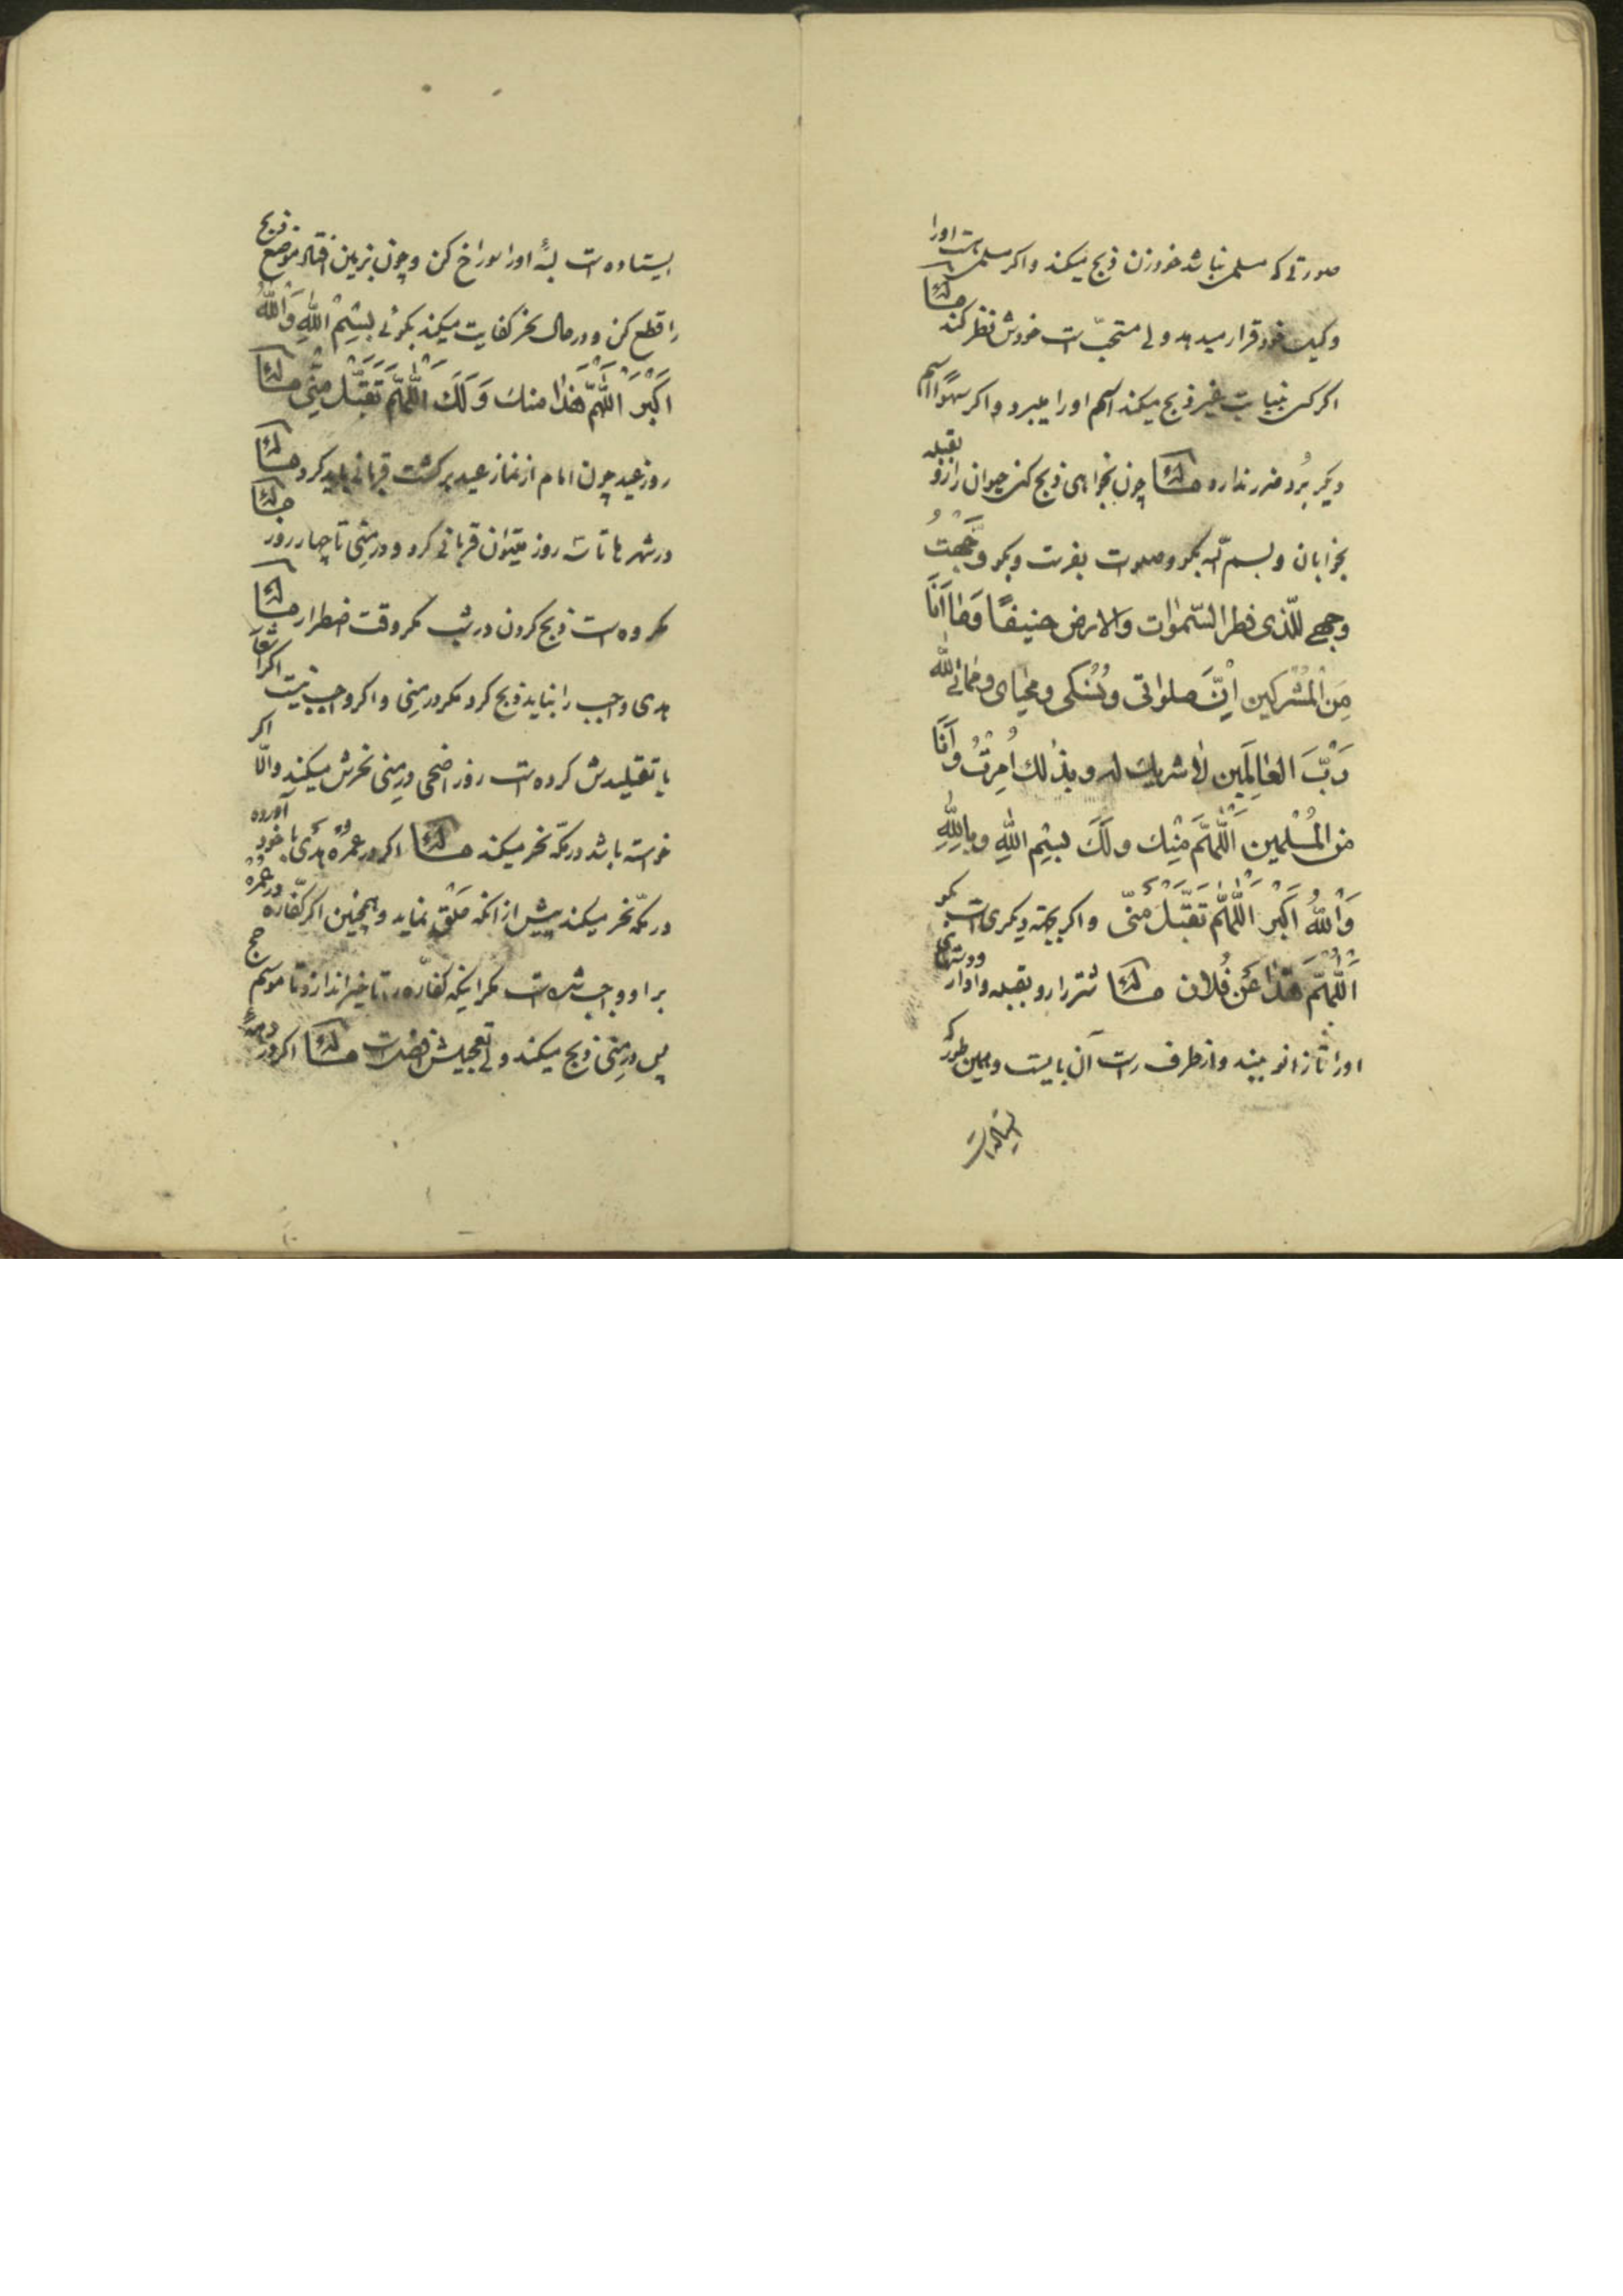 صورتی که مسلم نباشد خود زن ذبح میکند و اگر مسلم هست اورا
وکیل خود قرار میدهد ولی مستحبّ است خودش نظر کند مسئله
اگر کسی بنیابت غیر ذبح میکند اسم اورا میبرد و اگر سهوًا اسم
دیگر بُرد ضرر ندارد مسئله چون بخواهی ذبح کنی حیوان را رو بقبله
بخوابان و بسم الله بگو و صلوات بفرست و بگو وَجَّهْتُ
وجهی للّذی فطر السّموات والارض حنیفًا وَما اَنَا
مِنَ الْمُشْرِکین اِنَّ صلواتی وَنُسُکی ومحیای ومماتی للّه
رَبِّ العالَمین لا شریك له وبذلك اُمِرْتُ وَاَنَا
من المُسْلمین اَللّهُمَّ مِنْكَ ولَكَ بِسْمِ اللهِ وبِاللهِ
وَاللهُ اَکْبَرُ اَللّهُمَّ تَقَبَّلْ مِنّی و اگر بجهة دیگری است بگو
اَللّهُمَّ هذا عَنْ فُلان مسئله شتر را رو بقبله وادار ودستهای
اورا تا زانو ببند و از طرف راست آن بایست و همین طور که
ایستاده است
ایستاده است لبّهٔ اورا سوراخ کن و چون بزمین افتاد موضع ذبح
را قطع کن و در حال نحر کفایت میکند بگوئی بِسْمِ اللهِ وَاللهُ
اَکْبَرُ اَللّهُمَّ هذا مِنْكَ وَلَكَ اَللّهُمَّ تَقَبَّلْ مِنّی مسئله
روز عید چون امام از نماز عید برگشت قربانی باید کرد مسئله
در شهرها تا سه روز میتوان قربانی کرد و در مِنی تا چهار روز مسئله
مکروه است ذبح کردن در شب مگر وقت اضطرار مسئله
هدی واجب را نباید ذبح کرد مگر در مِنی و اگر واجب نیست اگر اشعار
یا تقلیدش کرده است روز اضحی در مِنی نحرش میکند والّا اگر
خواسته باشد در مکّه نحر میکند مسئله اگر در عمره هدی با خود آورده
در مکّه نحر میکند پیش از آنکه حَلْق نماید و همچنین اگر کفّاره در عُمْره
بر او واجب شده است مگر اینکه کفّاره را تا خیر اندازد تا موسم حج
پس در مِنی ذبح میکند ولی تعجیلش افضل است مسئله اگر در